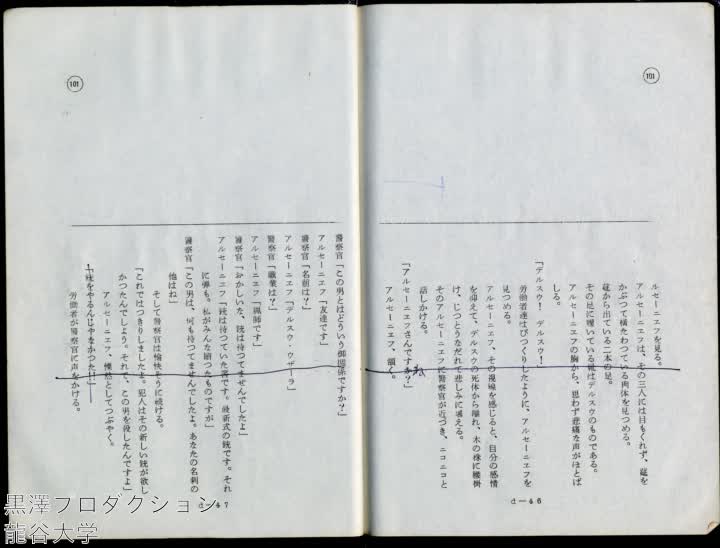 101
ルセーニエフを見る。
アルセーニエフは、その三人には目もくれず、菰を
かぶつて横たわつている肉体を見つめる。
菰から出ている二本の足。
その足に履いている靴はデルスウのものである。
アルセーニエフの胸から、思わず悲痛な声がほとば
しる。
「デルスウ! デルスウ!
労働者達はびつくりしたように、アルセーニエフを
見つめる。
アルセーニエフ、その視線を感じると、自分の感情
を抑えて、デルスウの死体から離れ、木の株に腰掛
け、じつとうなだれて悲しみに堪える。
そのアルセーニエフに警察官が近づき、ニコニコと
話しかける。
「アルセーニエフさんですね?」
アルセーニエフ、頷く。
d—46
101
警察官「この男とはどういう御関係ですか?」
アルセーニエフ「友達です」
警察官「名前は?」
アルセーニエフ「デルスウ・ウザーラ」
警察官「職業は?」
アルセーニエフ「猟師です」
警察官「おかしいな、銃は持つてませんでしたよ」
アルセーニエフ「銃は持つていた筈です。最新式の銃です。それ
に弾も。私がみんな贈つたものですが」
警察官「この男は、何も持つてませんでしたよ。あなたの名刺の
他はね」
そして警察官は愉快そうに続ける。
「これではつきりしましたよ。犯人はその新しい銃が欲し
かつたんでしよう。それで、この男を殺したんですよ」
アルセーニエフ、憮然としてつぶやく。
「銃をやるんじやなかつた!」
労働者が警察官に声をかける。
d—47
黒澤プロダクション
龍谷大学